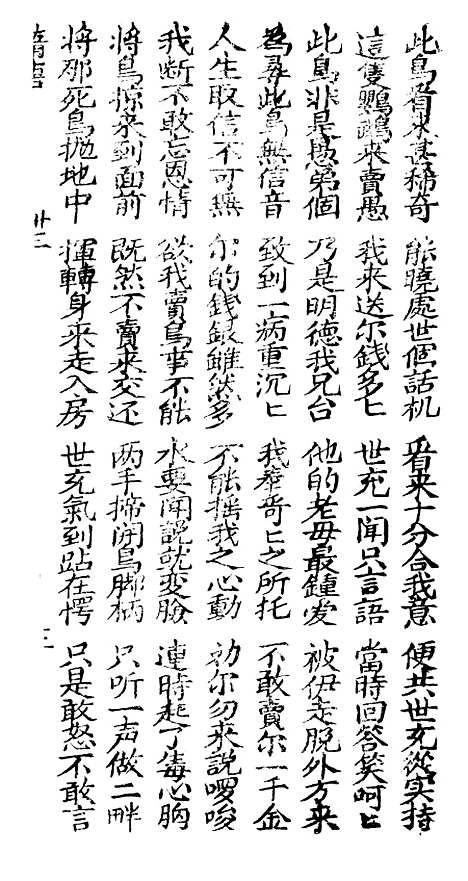 此鳥看來甚稀奇 能曉處世個話机 㸔來十分合我意 便共世充從实持
這隻鸚鵡來賣愚 我來送尔錢多匕 世充一聞只言語 當時回答笑呵匕
此鳥非是愚弟個 乃是明德我兄台 他的老母最鍾爱 被伊走脱外方来
為尋此鳥無信音 致到一病重沉匕 我奉哥匕之所托 不敢賣尔一千金
人生取信不可無 尔的錢銀雖然多 不能搖我之心動 劝尔勿来説囉唆
我断不敢忘恩情 欲我賣鳥事不能 水要聞説就变臉 連時起了毒心胸
將鳥掠來到面前 既然不賣来交还 两手擗開鳥脚柄 只听一声做二畔
將那死鳥抛地中 揮轉身来走入房 世充氣到跕在愕 只是敢怒不敢言
廿三